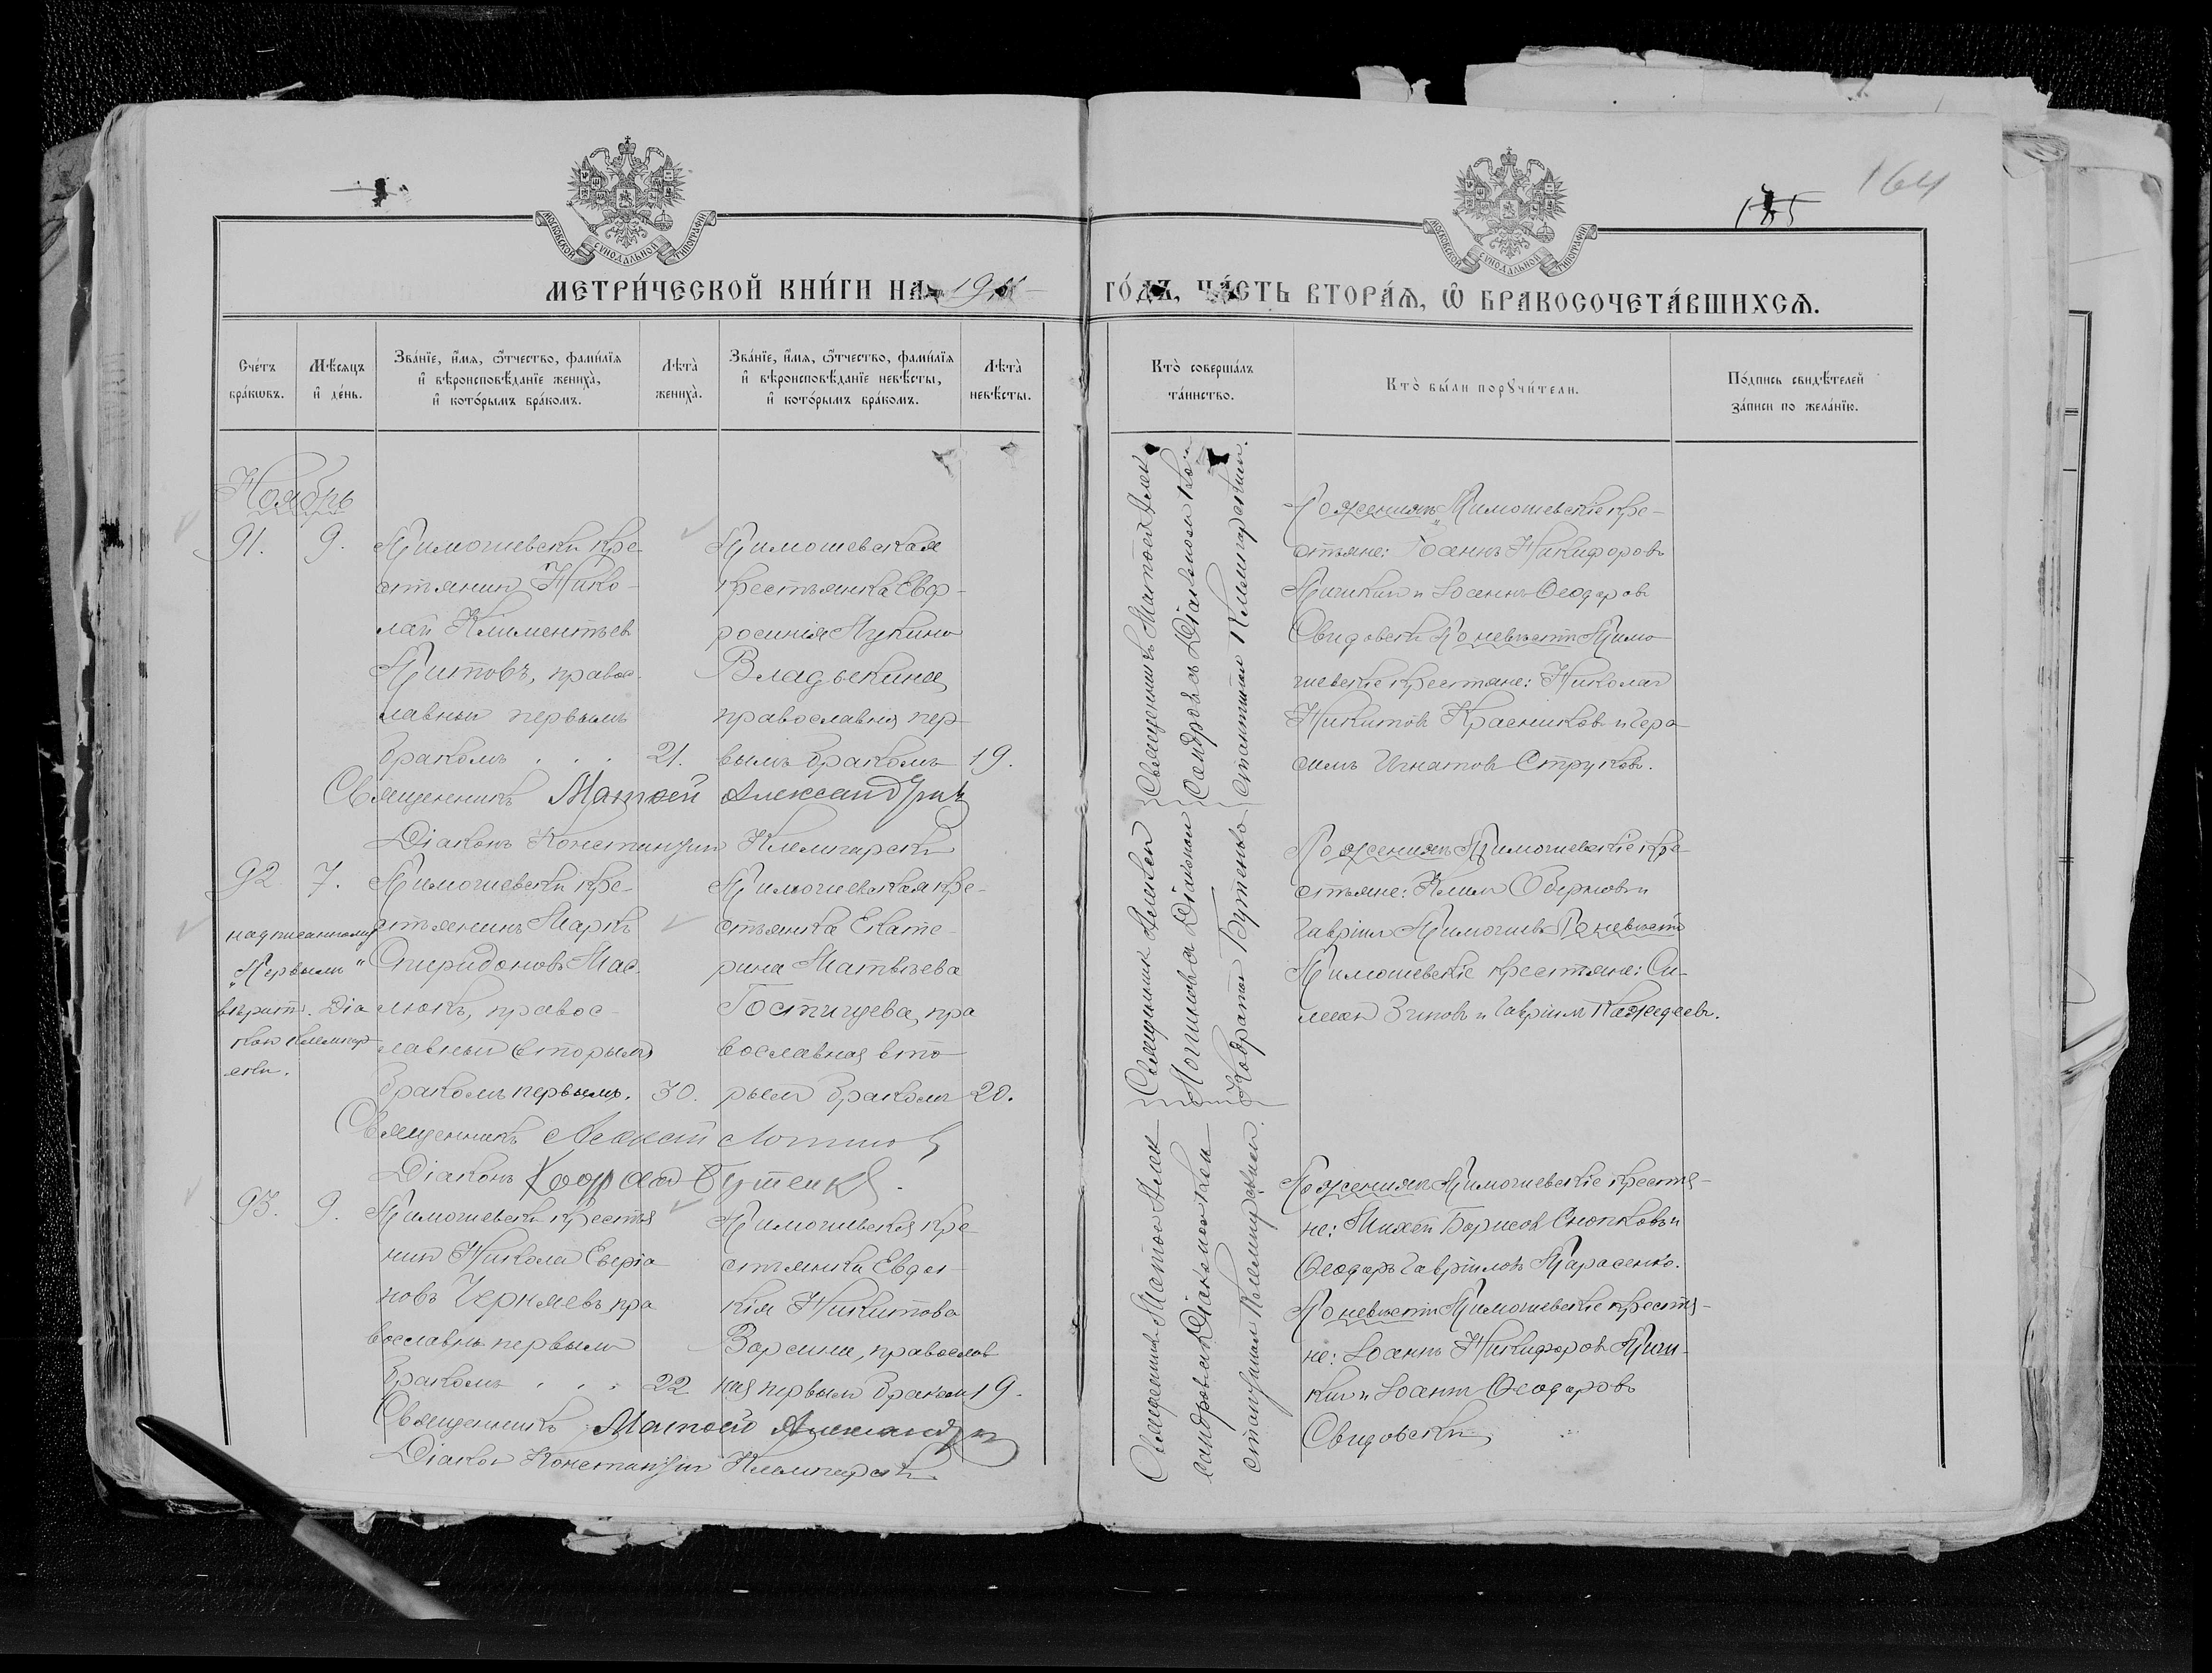 164
МОСКОВСКОЙ СУНОДАЛЬНОЙ ТИПОГРАФІИ
МОСКОВСКОЙ СУНОДАЛЬНОЙ ТИПОГРАФІИ
МЕТРИ́ЧЕСКОЙ КНИ́ГИ НА 1911
ГО́ДЪ, ЧА́СТЬ ВТОРА́Я, Ѡ БРАКОСОЧЕТА́ВШИХСЯ.
Сче́тъ бра́кѡвъ.
Мѣ́сяцъ и҆ де́нь.
Зва́нїе, и҆́мя, ѻ҆́тчество, фами́лїя
и҆ вѣроисповѣ́данїе жениха̀,
и҆ кото́рымъ бра́комъ.
Лѣта̀ жениха̀.
Зва́нїе, и҆́мя, ѻ҆́тчество, фами́лїя
и҆ вѣроисповѣ́данїе невѣ́сты,
и҆ кото́рымъ бра́комъ.
Лѣта̀ невѣ́сты.
Кто̀ соверша́лъ та́инство.
Кто̀ бы́ли порꙋчи́тели.
По́дпись свидѣ́телей
за́писи по жела́нїю.
Ноябрь
91. 9.
Тимошевскій кре-
стьянинъ Нико-
лай Климентьев
Титовъ, правос-
лавный первымъ
бракомъ . . . 21.
Тимошевская
крестьянка Евф-
росинія Лукина
Владыкина,
православная пер-
вымъ бракомъ 19.
Священникъ Матѳей Александров
Діаконъ Константинъ Клемпарскій
По женихѣ Тимошевскіе кре-
стьяне: Іоаннъ Никифоровъ
Пичкин и Іоаннъ Ѳеодоров
Свидовскій По невѣстѣ Тимо
шевскіе крестяне: Николай
Никитов Красников и Гера
симъ Игнатов Струков.
Священникъ Матѳей Алек-
сандровъ съ Діакономъ Кон
стантиномъ Клемпарским.
92. 7.
Тимошевскій кре-
стьянинъ Маркъ
Спиридоновъ Мас-
люкъ, правос-
лавный вторымъ
бракомъ первымъ. 30.
надписанному
"Первымъ"
вѣрить. Діа
кон Клемпар
скій.
Тимошевская кре-
стьянка Екате-
рина Матвѣева
Гостищева, пра
вославная вто-
рым бракомъ 20.
Священникъ Алексѣй Логинов
Діаконъ Кодратъ Бутенко
По женихѣ Тимошевскіе кре-
стьяне: Клим
Гавріил Тимошев По невѣстѣ
Тимошевскіе крестяне: Си-
меон Зинов и Гавріил
Священник Алексѣй
Логинов съ Діаконом
Кодратом Бутенко
93. 9.
Тимошевскій крестья
нин Николай Сверіа
новъ Черняевъ пра
вославнъ первым
бракомъ . . . 22
Тимошевская кре
стьянка Евдо-
кія Никитова
Ворсина, православ
ная первым браком 19.
Священникъ Матѳей Александров
Діакон Константин Клемпарскій
По женихѣ Тимошевскіе крестья-
не: Михей Борисов Снопковъ и
Ѳеодоръ Гавріиловъ Тарасенко.
По невѣстѣ Тимошевскіе крестья-
не: Іоаннъ Никифоров Пич-
кин и Іоаннъ Ѳеодоровъ
Свидовскій
Священник Матѳей Алек
сандров съ Діаконом Кон
стантином Клемпарским.